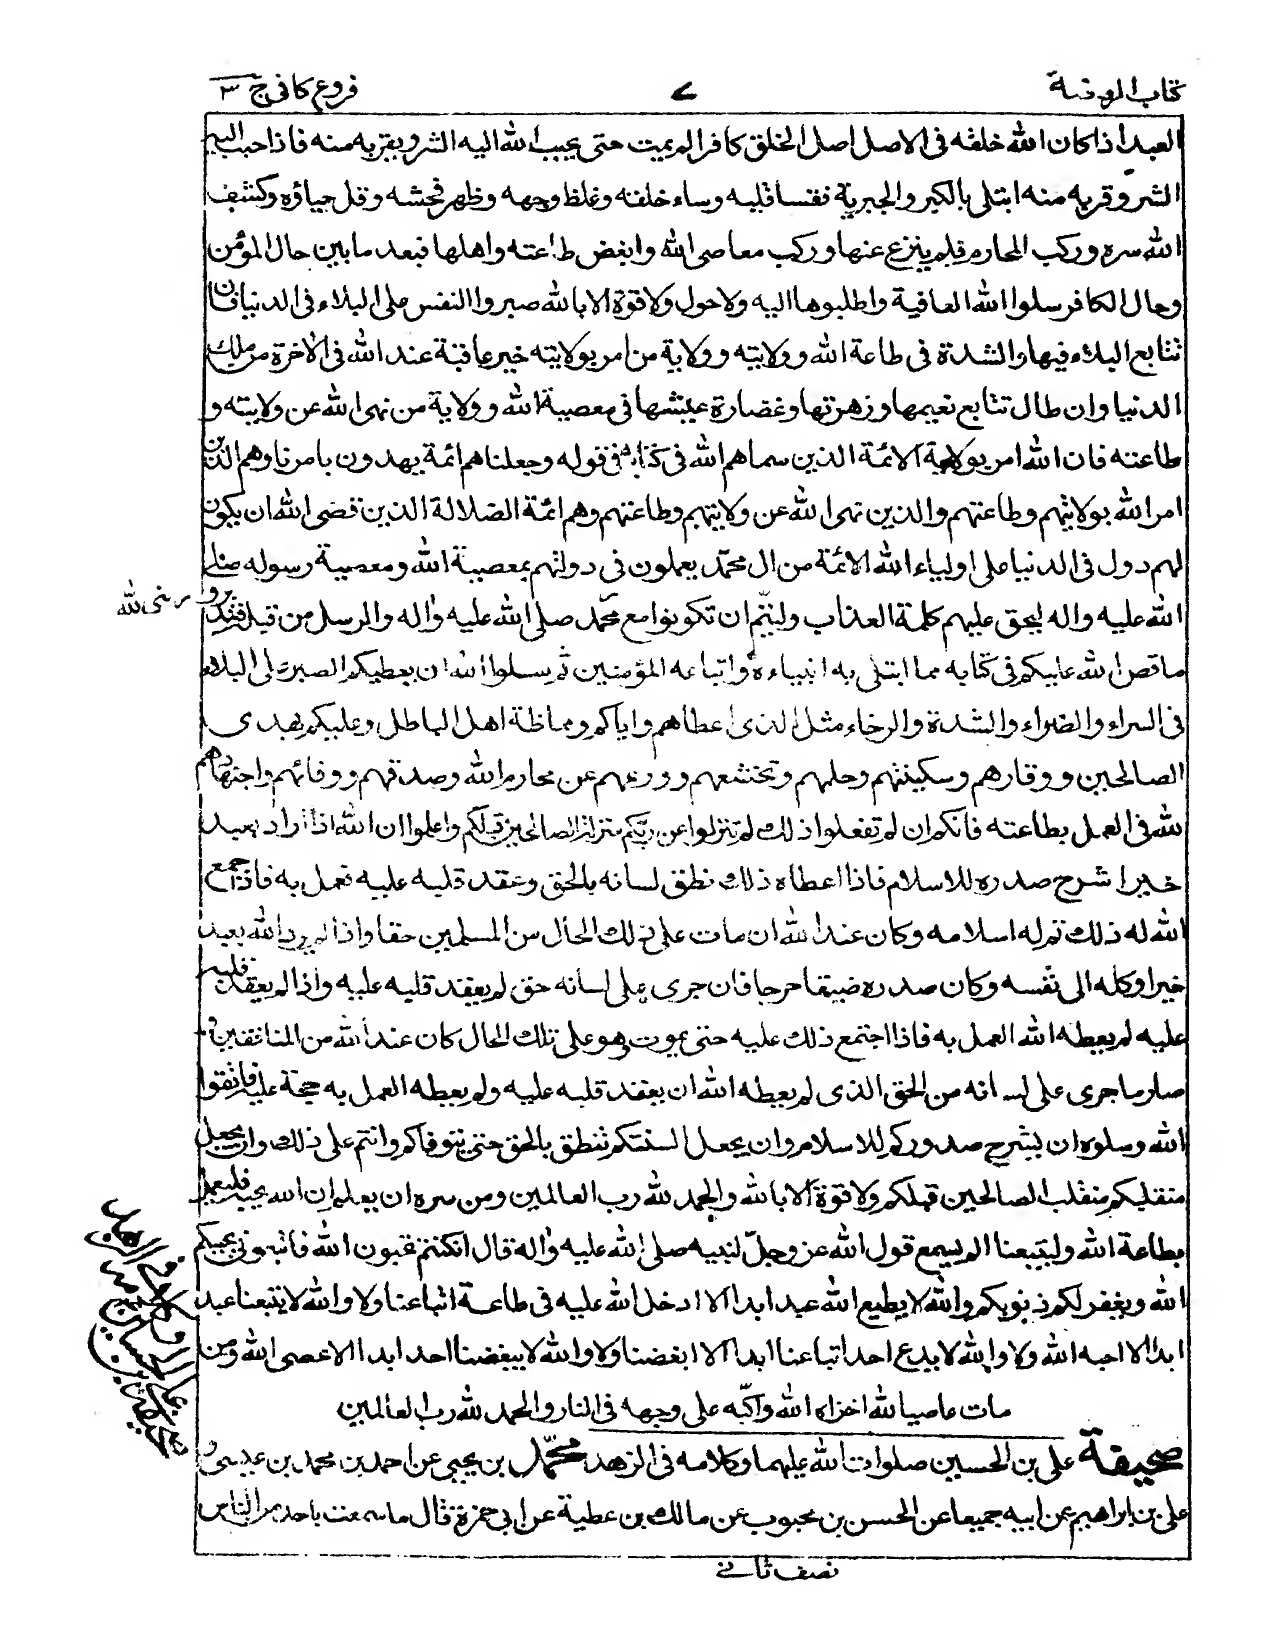 كتاب الروضة
٧
فروع كافى ج ٣
العبد اذا كان الله خلقه فى الاصل اصل الخلق كافرا لم يمت حتى يحبب الله اليه الشر ويقربه منه فاذا حبب اليه
الشر وقربه منه ابتلى بالكبر والجبرية فقسا قلبه وساء خلقه وغلظ وجهه وظهر فحشه وقل حياؤه وكشف
الله سره وركب المحارم فلم ينزع عنها وركب معاصى الله وابغض طاعته واهلها فبعد ما بين حال المؤمن
وحال الكافر سلوا الله العافية واطلبوها اليه ولا حول ولا قوة الا بالله صبروا النفس على البلاء فى الدنيا فان
تتابع البلاء فيها والشدة فى طاعة الله وولايته وولاية من امر بولايته خير عاقبة عند الله فى الآخرة من ملك
الدنيا وان طال تتابع نعيمها وزهرتها وغضارة عيشها فى معصية الله وولاية من نهى الله عن ولايته و
طاعته فان الله امر بولاية الائمة الذين سماهم الله فى كتابه فى قوله وجعلناهم ائمة يهدون بامرنا وهم الذين
امر الله بولايتهم وطاعتهم والذين نهى الله عن ولايتهم وطاعتهم وهم ائمة الضلالة الذين قضى الله ان يكون
لهم دول فى الدنيا على اولياء الله الائمة من ال محمد يعملون فى دولتهم بمعصية الله ومعصية رسوله صلى
الله عليه واله ليحق عليهم كلمة العذاب وليتم ان تكونوا مع محمد صلى الله عليه واله والرسل من قبله فتدبروا
ما قص الله عليكم فى كتابه مما ابتلى به انبياءه واتباعه المؤمنين ثم سلوا الله ان يعطيكم الصبر على البلاء
فى السراء والضراء والشدة والرخاء مثل الذى اعطاهم واياكم ومماظة اهل الباطل وعليكم بهدى
الصالحين ووقارهم وسكينتهم وحلمهم وتخشعهم وورعهم عن محارم الله وصدقهم ووفائهم واجتهادهم
لله فى العمل بطاعته فانكم ان لم تفعلوا ذلك لم تنزلوا عن ربكم منزلة الصالحين قبلكم واعلموا ان الله اذا اراد بعبد
خيرا شرح صدره للاسلام فاذا اعطاه ذلك نطق لسانه بالحق وعقد قلبه عليه فعمل به فاذا جمع
الله له ذلك تم له اسلامه وكان عند الله ان مات على ذلك الحال من المسلمين حقا واذا لم يرد الله بعبد
خيرا وكله الى نفسه وكان صدره ضيقا حرجا فان جرى على لسانه حق لم يعقد قلبه عليه واذا لم يعقد قلبه
عليه لم يعطه الله العمل به فاذا اجتمع ذلك عليه حتى يموت وهو على تلك الحال كان عند الله من المنافقين و
صار ما جرى على لسانه من الحق الذى لم يعطه الله ان يعقد قلبه عليه ولم يعطه العمل به حجة عليه فاتقوا
الله وسلوه ان يشرح صدوركم للاسلام وان يجعل السنتكم تنطق بالحق حتى يتوفاكم وانتم على ذلك وان يجعل
منقلبكم منقلب الصالحين قبلكم ولا قوة الا بالله والحمد لله رب العالمين ومن سره ان يعلم ان الله يحبه فليعمل
بطاعة الله وليتبعنا الم يسمع قول الله عز وجل لنبيه صلى الله عليه واله قال ان كنتم تحبون الله فاتبعونى يحببكم
الله ويغفر لكم ذنوبكم والله لا يطيع الله عبد ابدا الا ادخل الله عليه فى طاعة اتباعنا ولا والله لا يتبعنا عبد
ابدا الا احبه الله ولا والله لا يدع احد اتباعنا ابدا الا ابغضنا ولا والله لا يبغضنا احد ابدا الا عصى الله ومن
مات عاصيا لله اخزاه الله واكبه على وجهه فى النار والحمد لله رب العالمين
صحيفة على بن الحسين صلوات الله عليهما وكلامه فى الزهد محمد بن يحيى عن احمد بن محمد بن عيسى و
على بن ابراهيم عن ابيه جميعا عن الحسن بن محبوب عن مالك بن عطية عن ابى حمزة قال ما سمعت باحد من الناس
نصف ثانى